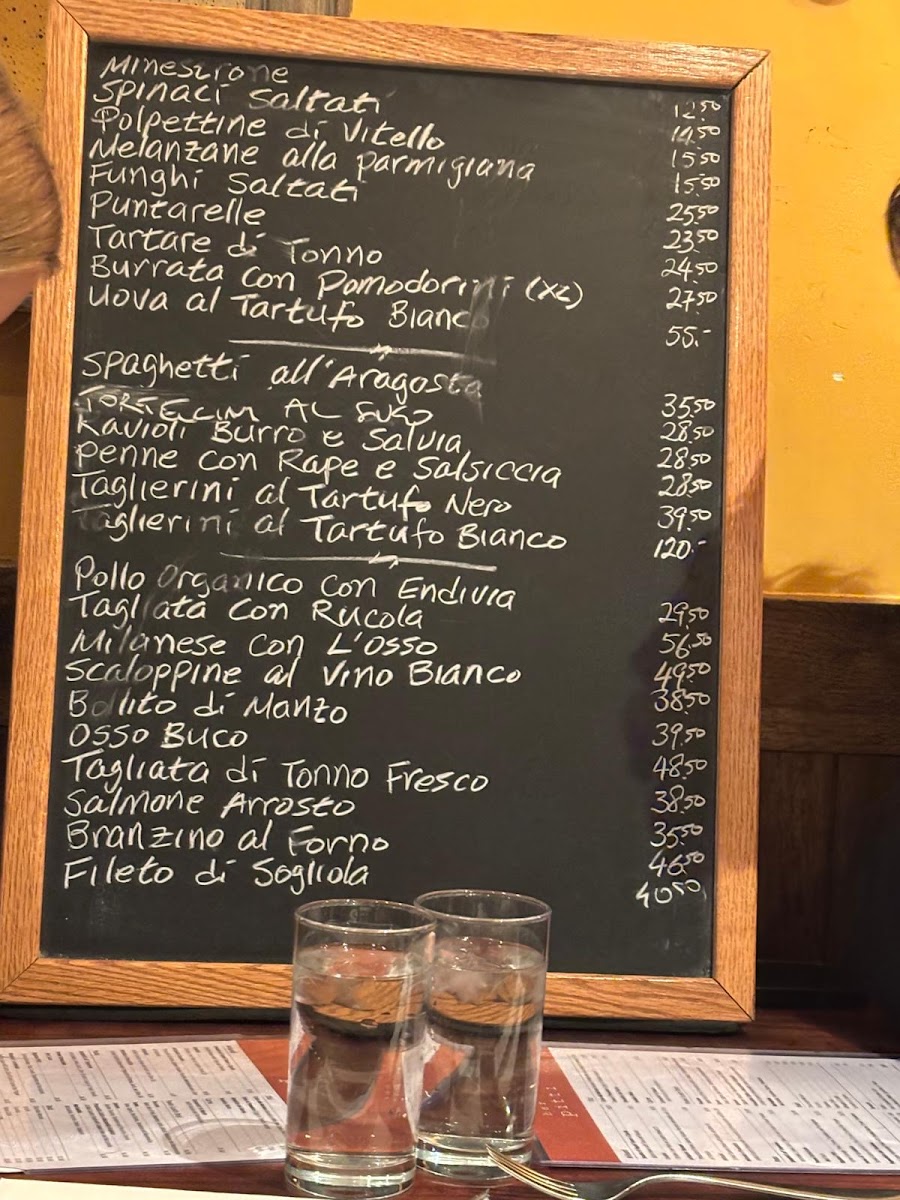 Minestrone 12.50
Spinaci Saltati 14.50
Polpettine di Vitello 15.50
Melanzane alla parmigiana 15.50
Funghi Saltati 25.50
Puntarelle 23.50
Tartare di Tonno 24.50
Burrata con Pomodorini (XL) 27.50
Uova al Tartufo Bianco 55.-
Spaghetti all'Aragosta 35.50
AL SUGO 28.50
Ravioli Burro e Salvia 28.50
Penne con Rape e Salsiccia 28.50
Taglierini al Tartufo Nero 39.50
Taglierini al Tartufo Bianco 120.-
Pollo Organico con Endivia 29.50
Tagliata con Rucola 56.50
Milanese con L'osso 49.50
Scaloppine al Vino Bianco 38.50
Bollito di Manzo 39.50
Osso Buco 48.50
Tagliata di Tonno Fresco 38.50
Salmone Arrosto 35.50
Branzino al Forno 46.50
Fileto di Sogliola 40.50